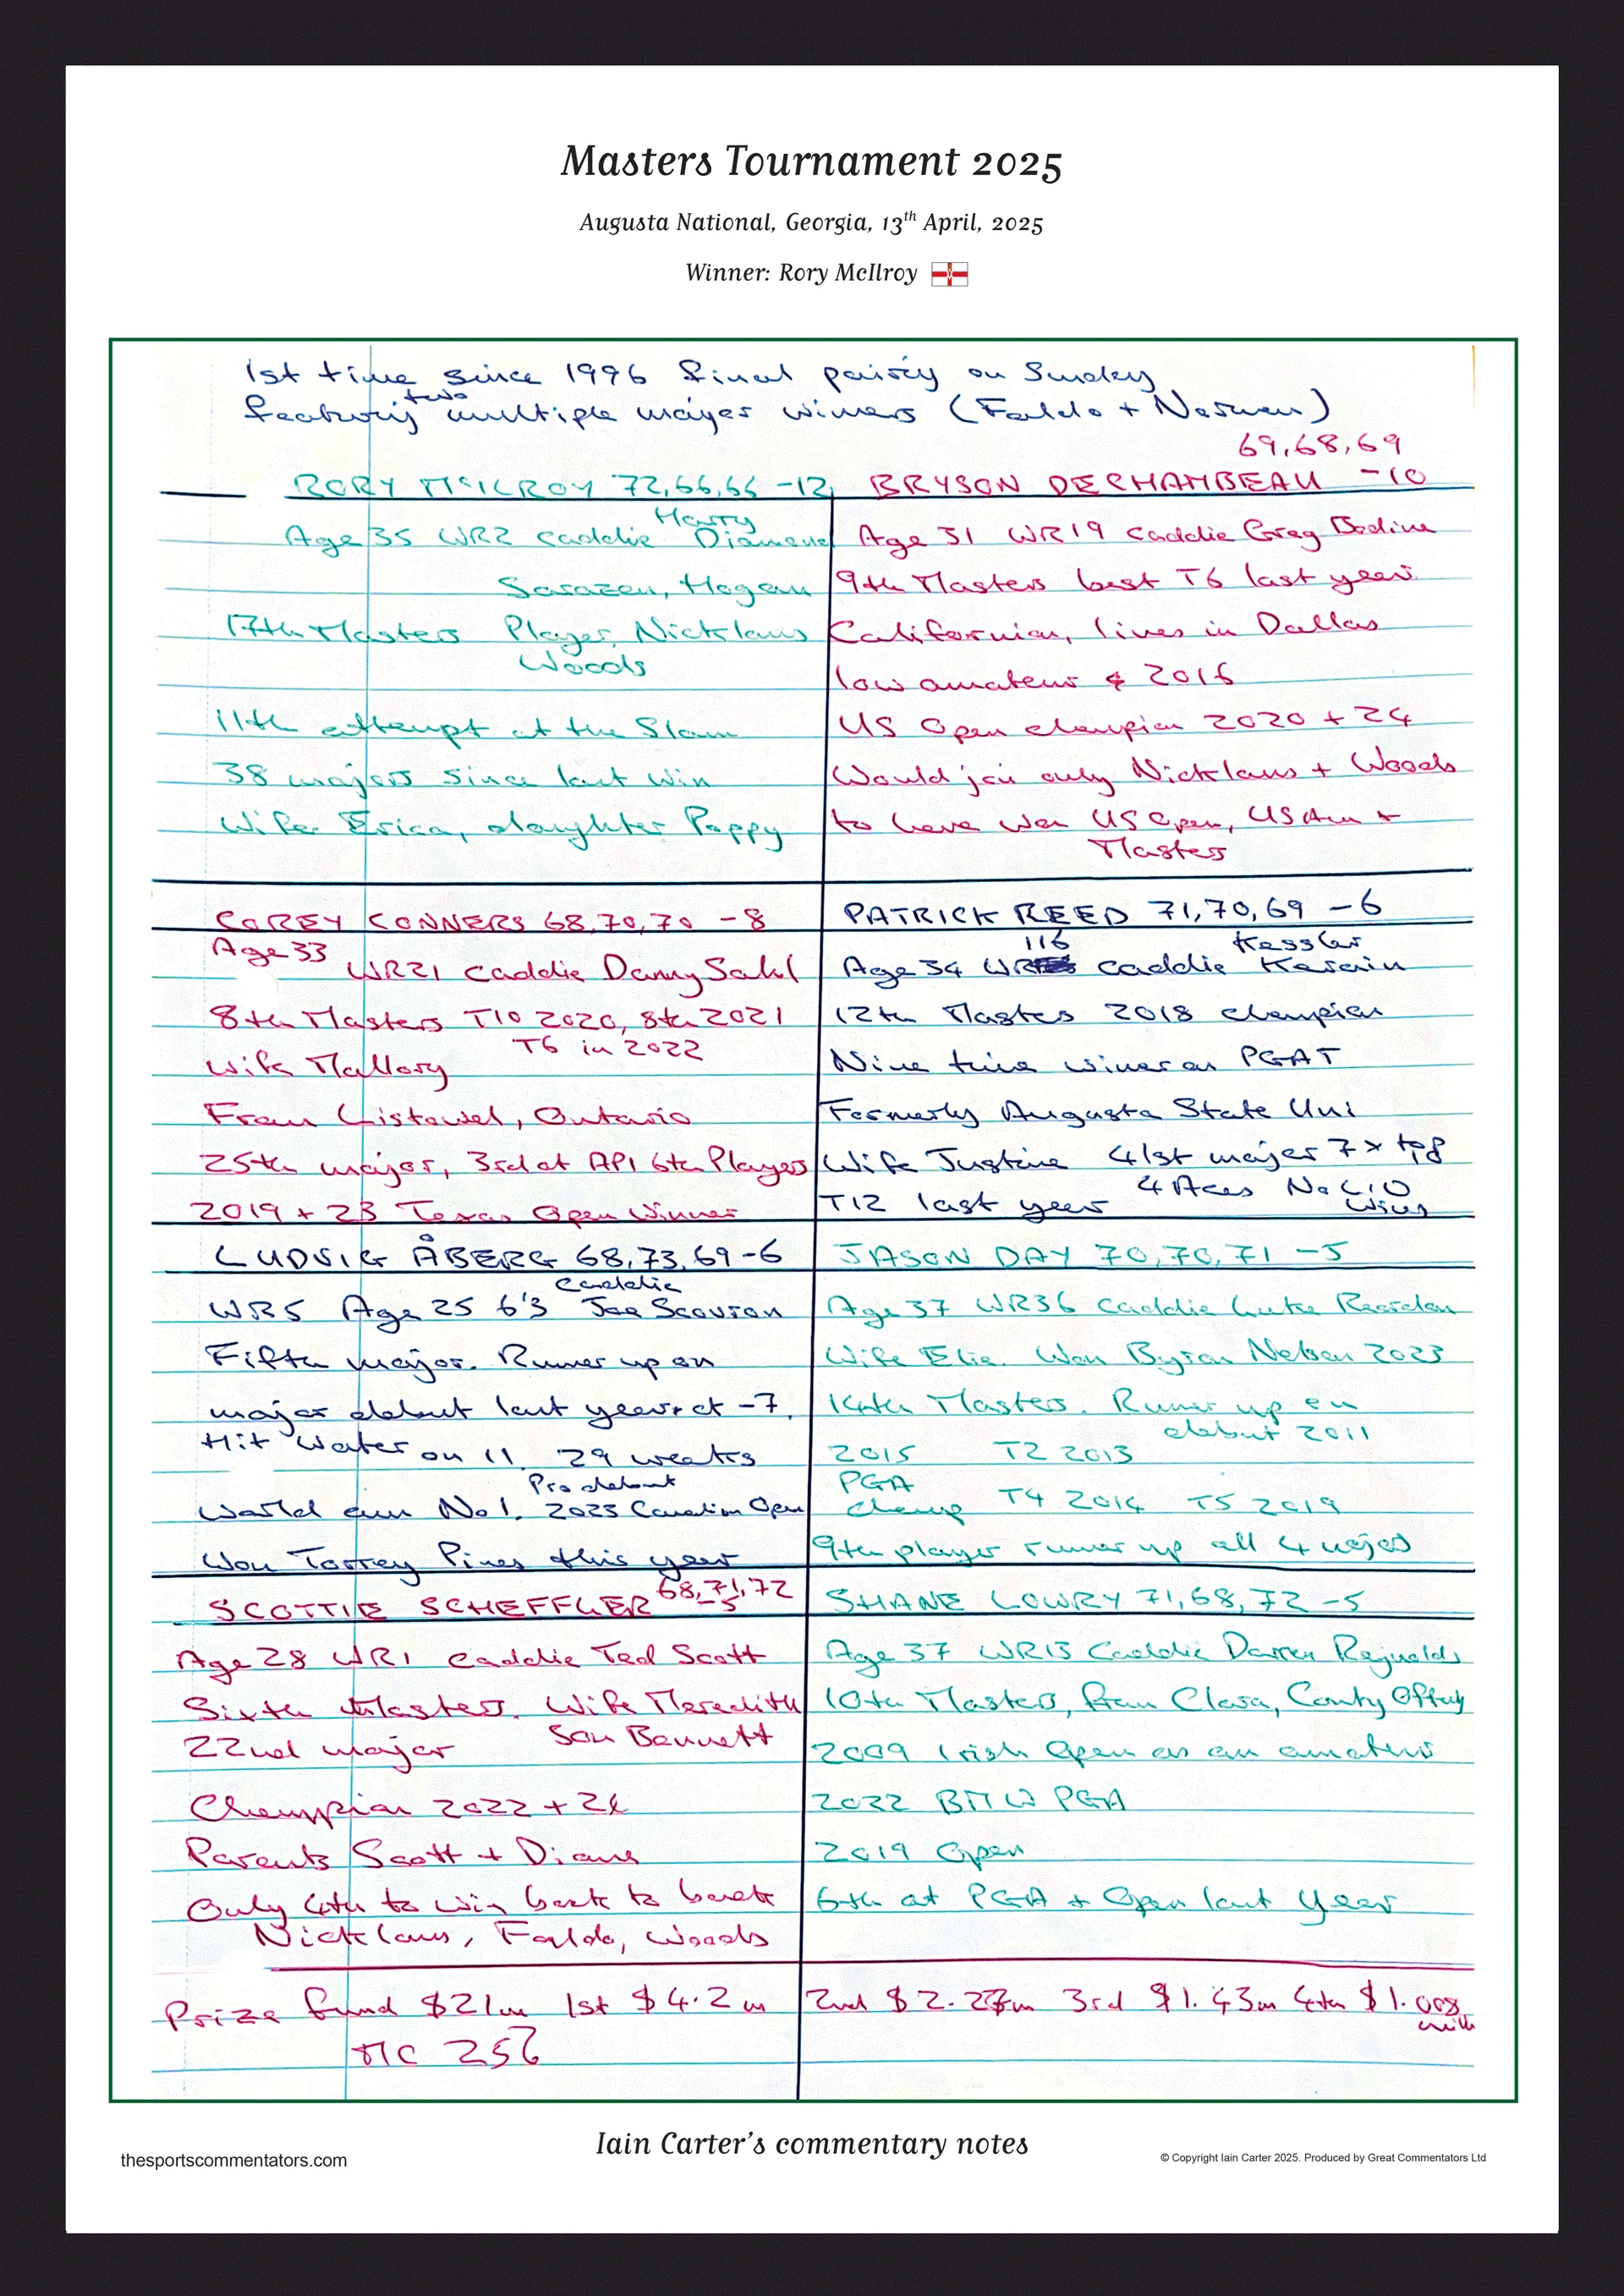 Masters Tournament 2025
Augusta National, Georgia, 13th April, 2025
Winner: Rory McIlroy
1st time since 1996 final pairing on Sunday
featuring two multiple major winners (Faldo + Norman)
RORY McILROY 72,66,66 -12
Age 35 WR2 caddie Harry Diamond
Sarazen, Hogan
17th Masters Player, Nicklaus
Woods
11th attempt at the Slam
38 majors since last win
Wife Erica, daughter Poppy
69,68,69
BRYSON DECHAMBEAU -10
Age 31 WR19 caddie Greg Bodine
9th Masters best T6 last year
Californian, lives in Dallas
low amateur 2016
US Open champion 2020 + 24
Would join only Nicklaus + Woods
to have won US Open, US Am +
Masters
COREY CONNERS 68,70,70 -8
Age 33 WR21 caddie Danny Sahl
8th Masters T10 2020, 8th 2021
T6 in 2022
Wife Mallory
From Listowel, Ontario
25th major, 3rd at API 6th Players
2019 + 23 Texas Open Winner
PATRICK REED 71,70,69 -6
Age 34 WR 116 caddie Kessler Karain
12th Masters 2018 champion
Nine time winner on PGAT
Formerly Augusta State Uni
Wife Justine 41st major 7 x top
4 Aces No LIV
T12 last year wins
LUDVIG ÅBERG 68,73,69 -6
WR5 Age 25 6'3 caddie Joe Scovron
Fifth major. Runner up on
major debut last year at -7.
Hit water on 11. 29 weeks
World am No1. Pro debut 2023 Canadian Open
Won Torrey Pines this year
JASON DAY 70,70,71 -5
Age 37 WR36 caddie Luke Reardon
Wife Ellie. Won Byron Nelson 2023
14th Masters. Runner up on
debut 2011
2015 T2 2013
PGA
champ T4 2014 T5 2019
9th player runner up all 4 majors
SCOTTIE SCHEFFLER 68,71,72
-5
Age 28 WR1 caddie Ted Scott
Sixth Masters. Wife Meredith
22nd major Son Bennett
Champion 2022 + 24
Parents Scott + Diane
Only 4th to win back to back
Nicklaus, Faldo, Woods
SHANE LOWRY 71,68,72 -5
Age 37 WR13 Caddie Darren Reynolds
10th Masters, from Clara, County Offaly
2009 Irish Open as an amateur
2022 BMW PGA
2019 Open
6th at PGA + Open last year
Prize fund $21m 1st $4.2m 2nd $2.27m 3rd $1.43m 4th $1.008
mill
MC 256
Iain Carter's commentary notes
thesportscommentators.com
© Copyright Iain Carter 2025. Produced by Great Commentators Ltd